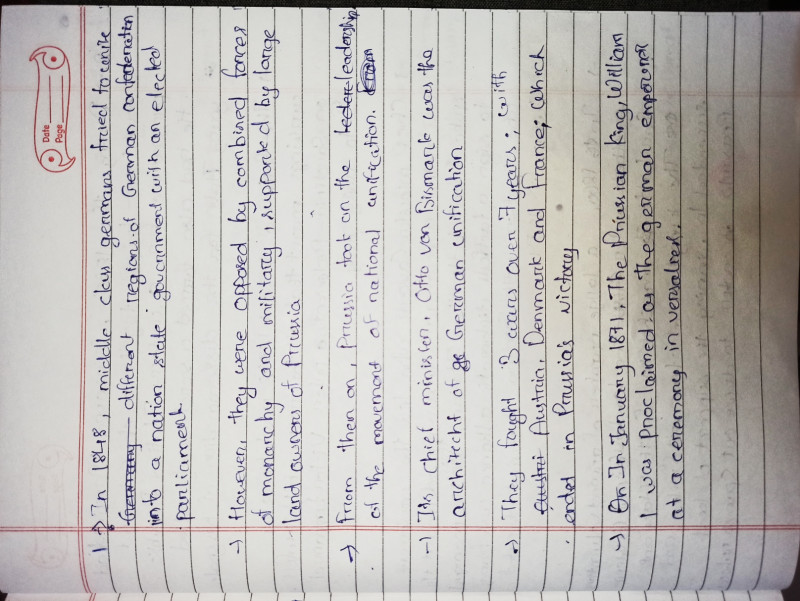 Date
Page
1 → In 1848, middle class germans tried to unite
different regions of German confederation
into a nation state government with an elected
parliament
→ However, they were opposed by combined forces
of monarchy and military, supported by large
land owners of Prussia
→ From then on, Prussia took on the leadership
of the movement of national unification.
→ Its chief minister, Otto van Bismark was the
architecht of German unification
→ They fought 3 wars over 7 years; with
Austria, Denmark and France; which
ended in Prussia's victory
→ In January 1871, The Prussian King, William
I was proclaimed as the german emperor
at a ceremony in versalies.